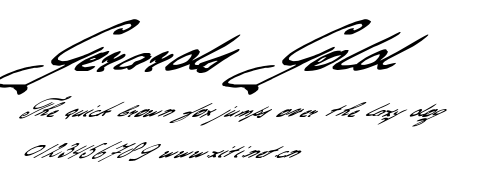 Gerards Gold
The quick brown fox jumps over the lazy dog
0123456789 www.xiti.not.cn